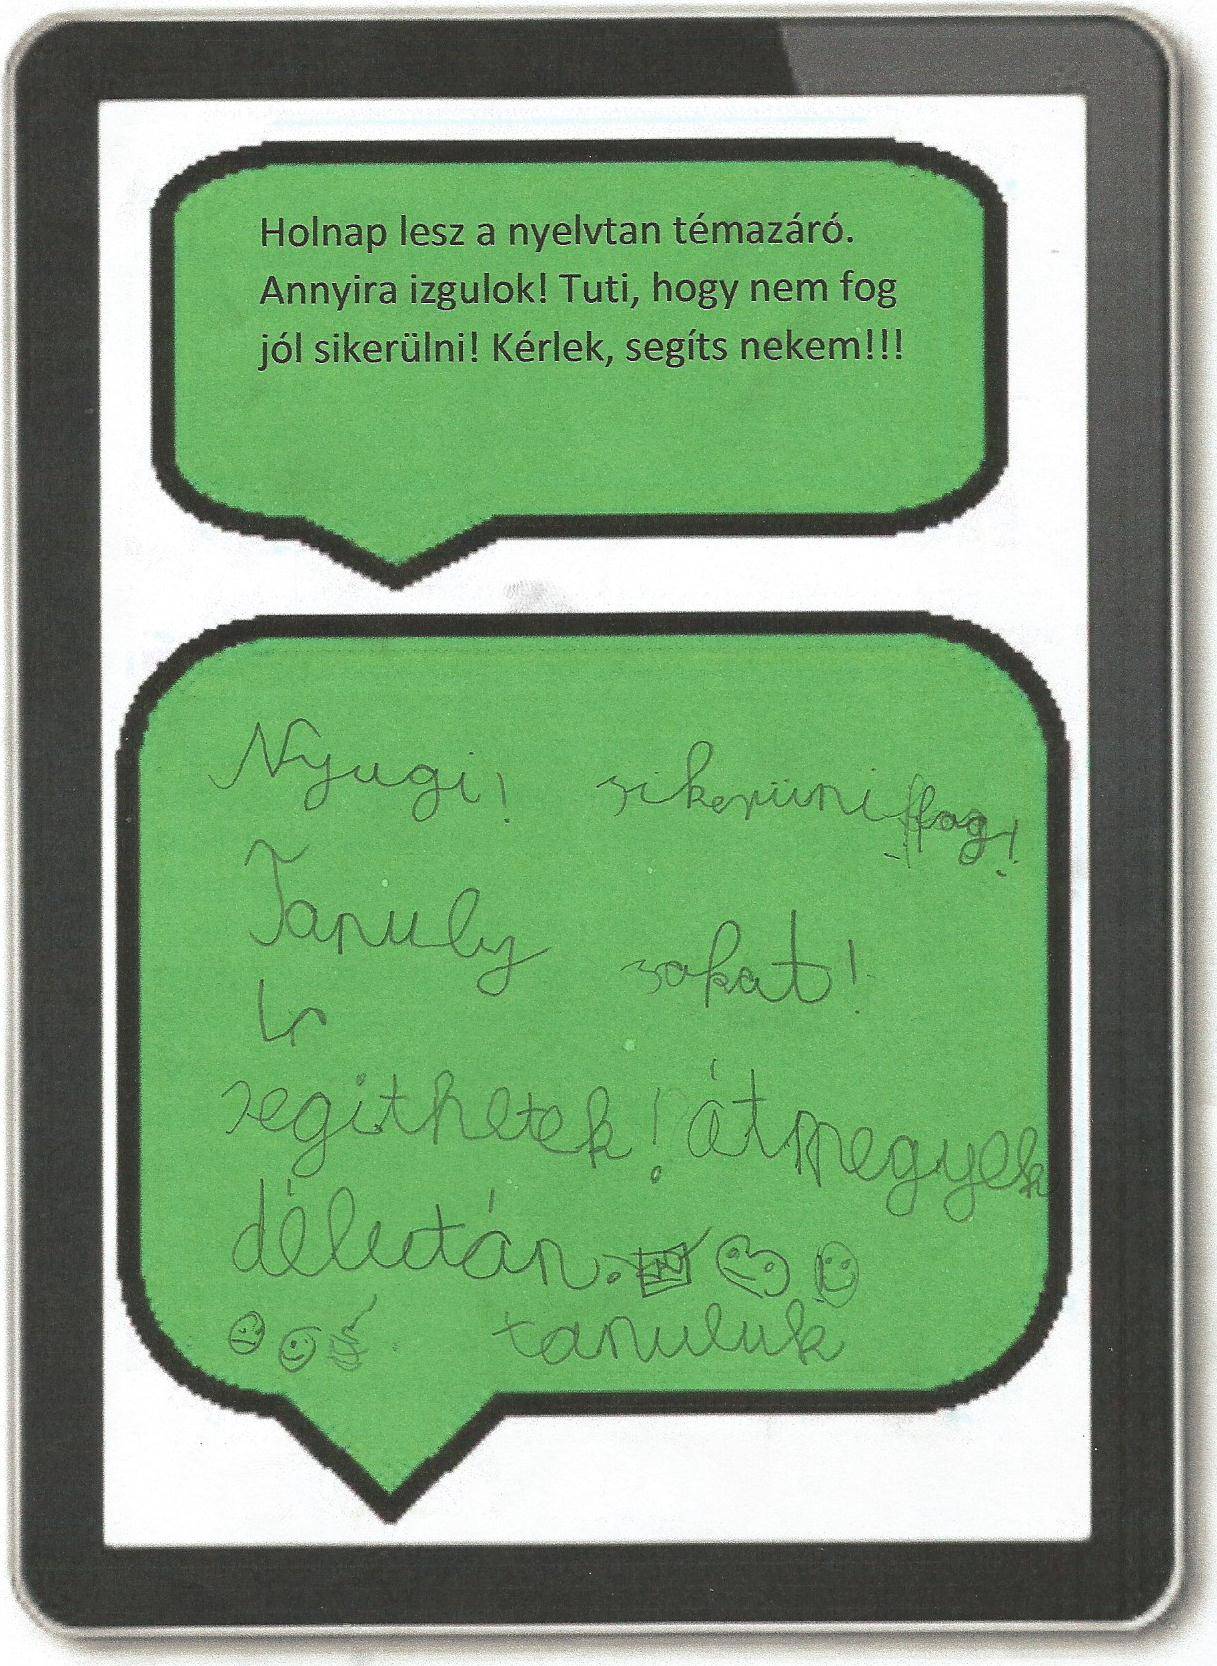 Holnap lesz a nyelvtan témazáró.
Annyira izgulok! Tuti, hogy nem fog
jól sikerülni! Kérlek, segíts nekem!!!
Nyugi! sikerüni fog!
Tanuly sokat!
segithetek! átmegyek
délután.
tanuluk